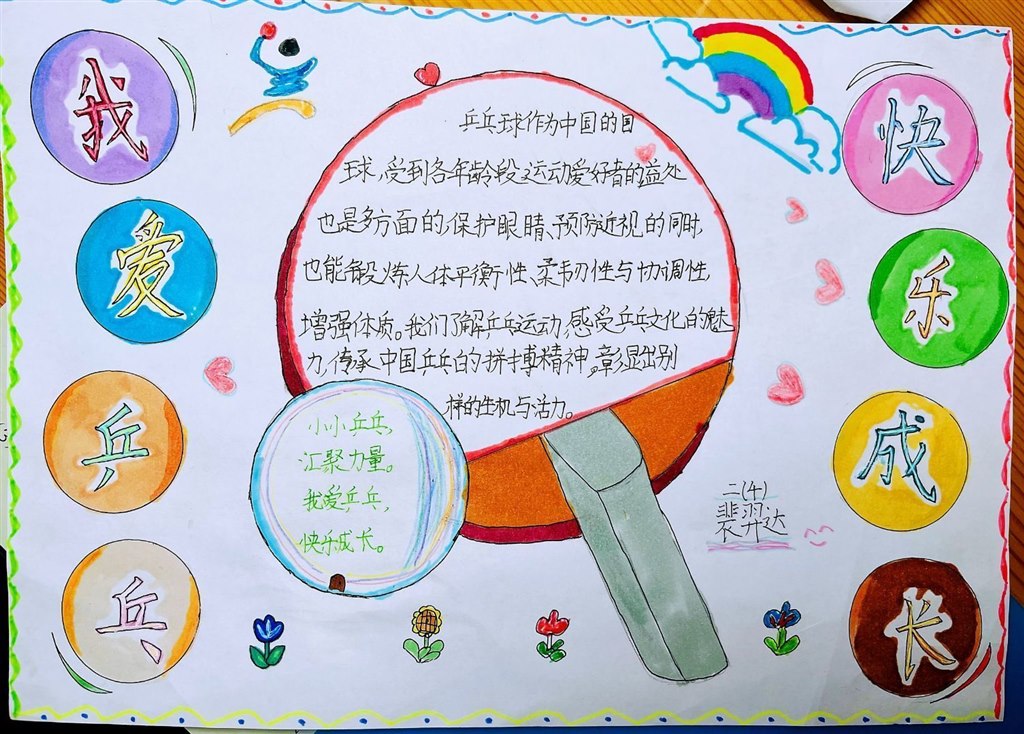 我
爱
乒
乓
快
乐
成
长
乒乓球作为中国的国
球,受到各年龄段运动爱好者的益处
也是多方面的,保护眼睛、预防近视的同时,
也能锻炼人体平衡性、柔韧性与协调性,
增强体质。我们了解乒乓运动,感受乒乓文化的魅
力,传承中国乒乓的拼搏精神,彰显出别
样的生机与活力。
小小乒乓,
汇聚力量。
我爱乒乓,
快乐成长。
二(4)
裴羿达